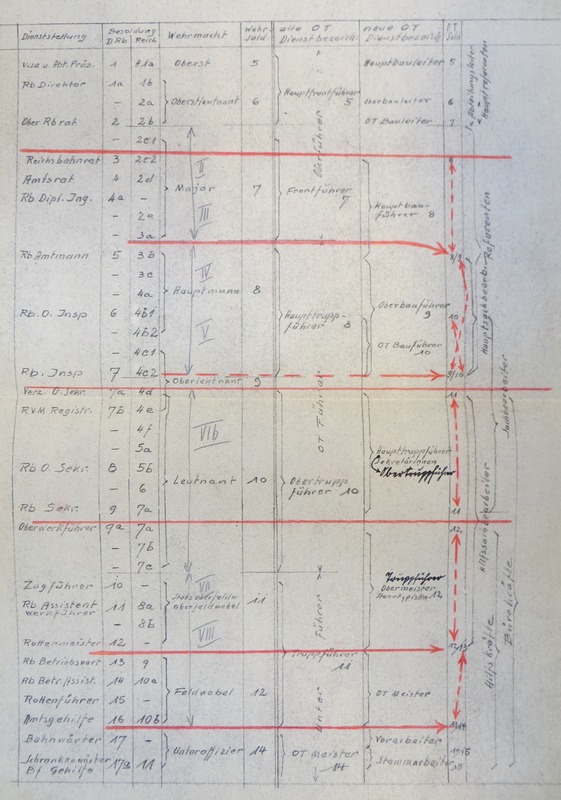 Dienststellung Besoldung DRb Reich Wehrmacht Wehr-sold. alte OT Dienstbezeich. neue OT Dienstbezeich. OT Sold
Vize u. Abt. Präs. 1 Oberst 5 Hauptbauleiter 5
Rb Direktor 1a 1b
- 2a Oberstleutnant 6 Hauptfrontführer 5 Oberbauleiter 6
Ober Rb rat 2 2b OT Bauleiter 7
- 2c1
Reichsbahnrat 3 2c2 II
Amtsrat 4 2d Major 7 Frontführer 7
Rb Dipl. Ing. 4a - Hauptbau-
- 2e III führer 8
- 3a
Rb Amtmann 5 3b
- 3c IV
- 4a Hauptmann 8
Rb. O. Insp 6 4b1 Haupttrupp- Oberbauführer 9 10
- 4b2 V führer 8
- 4c1 OT Bauführer 10
Rb. Insp 7 4c2 9/10
Oberleutnant 9
Verz. O. Sekr. 7a 4d 11
RVM Registr. 7b 4e
- 4f VIb
- 5a Haupttruppführer
Rb O. Sekr. 8 5b Sekretärinnen
Obertruppführer
- 6 Leutnant 10 Obertrupp
führer 10
Rb Sekr. 9 7a 11
Oberwerkführer 9a 7a 12
- 7b
- 7c
Zugführer 10 - VII Truppführer
Stabsfeldw. Oberfeldwebel 11 Obermeister
Rb Assistent 11 8a Stenotypistin 12
Werkführer
- 8b VIII
Rottenmeister 12 -
Truppführer 11
Rb Betriebswart 13 9
Rb Betr. Assist. 14 10a Feldwebel 12 OT Meister
Rottenführer 15 -
Amtsgehilfe 16 10b
Bahnwärter 17 - Unteroffizier 14 OT Meister 14 Vorarbeiter
Schrankenwärter 17a 11 Stammarbeiter
Bf Gehilfe
OT Führer
Unter Führer
Abteilungsleiter
Hauptreferenten
Referenten
Hauptsachbearb.
Sachbearbeiter
Hilfssachbearbeiter
Hilfskräfte
Bürokräfte